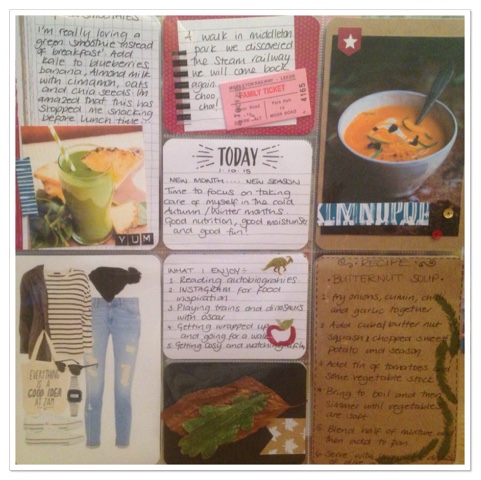 SMOOTHIES
I'm really loving a
green smoothie instead
of breakfast. Add
kale to blueberries
banana, Almond milk
with cinnamon, oats
and chia seeds. Im
amazed that this has
stopped me snacking
before lunch time
YUM
A walk in middleton
park we discovered
the Steam railway
we will come back
again
Choo
choo!
MIDDLETON RAILWAY - LEEDS
FAMILY TICKET
4165
TODAY
1-10-15
NEW MONTH .... NEW SEASON
Time to focus on taking
care of myself in the cold
Autumn/Winter months.
Good nutrition, good moisturiser
and good fun!
WHAT I ENJOY:
1. Reading autobiograhies
2. INSTAGRAM for food
inspiration
3. Playing trains and dinosaurs
with oscar
4. Getting wrapped up
and going for a walk
5. Getting cosy and watching a film
EVERYTHING
IS A
GOOD IDEA
AT 2AM
RECIPE
BUTTERNUT SOUP
1. Fry onions, cumin,
and garlic together
2. Add cubed butter nut
squash, chopped sweet
potato and season
3. Add tin of tomatoes and
some vegetable stock
4. Bring to boil and then
simmer until vegetables
are soft
5. Blend half of mixture
then add to pan
6. Serve with